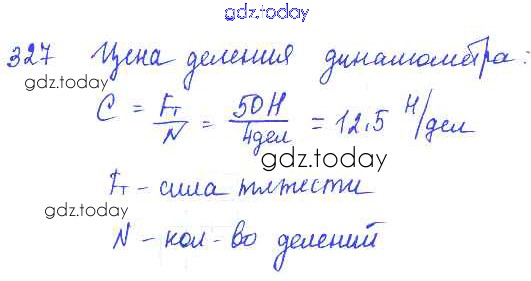 gdz.today
327 Цена деления динамометра:
gdz.today
C = Fт/N = 50Н/4дел = 12,5 Н/дел
gdz.today
Fт - сила тяжести
gdz.today
N - кол-во делений